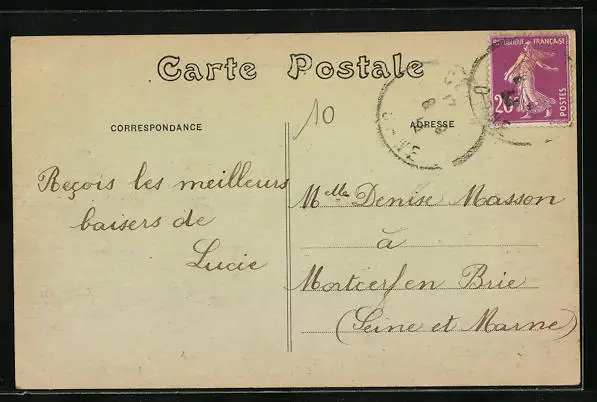 Carte Postale
RÉPUBLIQUE FRANÇAISE
20
POSTES
10
CORRESPONDANCE
ADRESSE
Reçois les meilleurs
baisers de
Lucie
Melle Denise Masson
à
Mortcerf en Brie
(Seine et Marne)